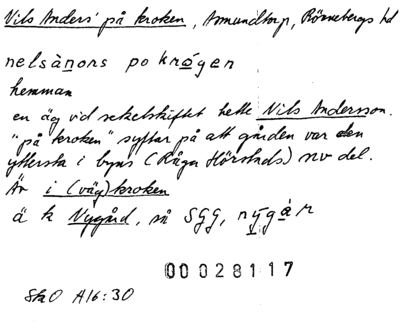 Nils Anders' på kroken, Asmundtorp, Rönnebergs hd
nelsànors po krógen
hemman
en äg vid sekelskiftet hette Nils Andersson.
"på kroken" syftar på att gården var den
yttersta i byns (Råga Hörstads) nv del.
Är i (väg)kroken
ä k Nygård, så SGG, nygàr
00028117
SkO A16:30